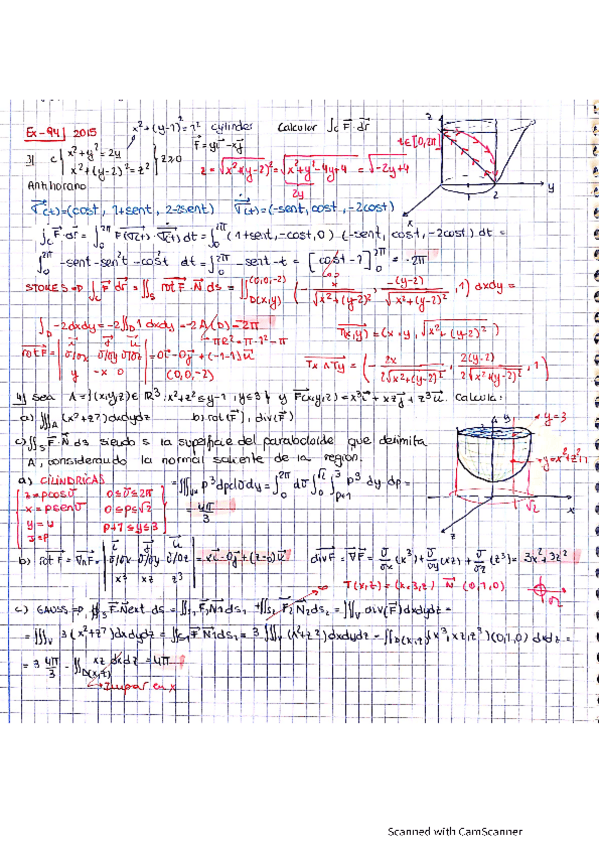 Ex-94 2015 x²+(y-1)²=1² cylinder Calcular ∫c F·dr
3) C { x²+y²=2y x²+(y-2)²=z² } z≥0 F=yi-xj t∈[0,2π]
z=√(x²+(y-2)²)=√(x²+y²-4y+4)=√(-2y+4)
2y
Antihorario
σ(t)=(cost, 1+sent, 2-2sent) σ̇(t)=(-sent, cost, -2cost)
∫c F·dr=∫₀^2π F(σ(t))·σ̇(t) dt=∫₀^2π (1+sent, -cost, 0)·(-sent, cost, -2cost) dt=
∫₀^2π -sent-sen²t-cos²t dt=∫₀^2π -sent-1=[cost-t]₀^2π=-2π
STOKES ⇒ ∫c F dr=∬s rot F·N ds=∬D(x,y) (0,0,-2)(-x/√(x²+(y-2)²), -(y-2)/√(x²+(y-2)²), 1) dxdy=
∫D -2dxdy=-2∬D 1 dxdy=-2A(D)=-2π
πR²=π·1²=π
T(x,y)=(x,y,√(x²+(y-2)²))
rot F=| i j u σ/σx σ/σy σ/σz y -x 0 |=0i-0j+(-1-1)u
(0,0,-2)
Tx∧Ty=(-2x/2√(x²+(y-2)²), 2(y-2)/2√(x²+(y-2)²), 1)
4) Sea A={(x,y,z)∈ℝ³: x²+z²≤y-1, y≤3} y F(x,y,z)=x³i+xzj+z³u. Calcula:
a) ∭A (x²+z²)dxdydz b) rot(F), div(F)
c) ∬s F·N ds siendo s la superficie del paraboloide que delimita
A, considerando la normal saliente de la region.
y=3
y=x²+z²+1
√2
x
z
a) CILÍNDRICAS
z=ρcosθ 0≤θ≤2π
x=ρsenθ 0≤ρ≤√2
y=u ρ²+1≤y≤3
J=ρ
=∭V* ρ³dρdθdy=∫₀^2π dθ∫₀^√2∫_ρ²+1^3 ρ³ dy dρ=
=4π/3
b) rot F=∇∧F=| i j u σ/σx σ/σy σ/σz x³ xz z³ |=xi-0j+(z-0)u div F=∇F=σ/σx(x³)+σ/σy(xz)+σ/σz(z³)=3x²+3z²
T(x,z)=(x,3,z) N (0,1,0)
√2
c) GAUSS ⇒ ∯s F Next ds=∬s₁ F₁N₁ds₁+∬s₂ F₂N₂ds₂=∭V div(F)dxdydz=
=∭V 3(x²+z²)dxdydz=∬s₁ F N₁ds₁=3∭V (x²+z²)dxdydz-∬D(x,z)(x³,xz,z³)(0,1,0) dxdz=
=3 4π/3-∬D(x,z) xz dxdz=4π
Impar en x
Scanned with CamScanner